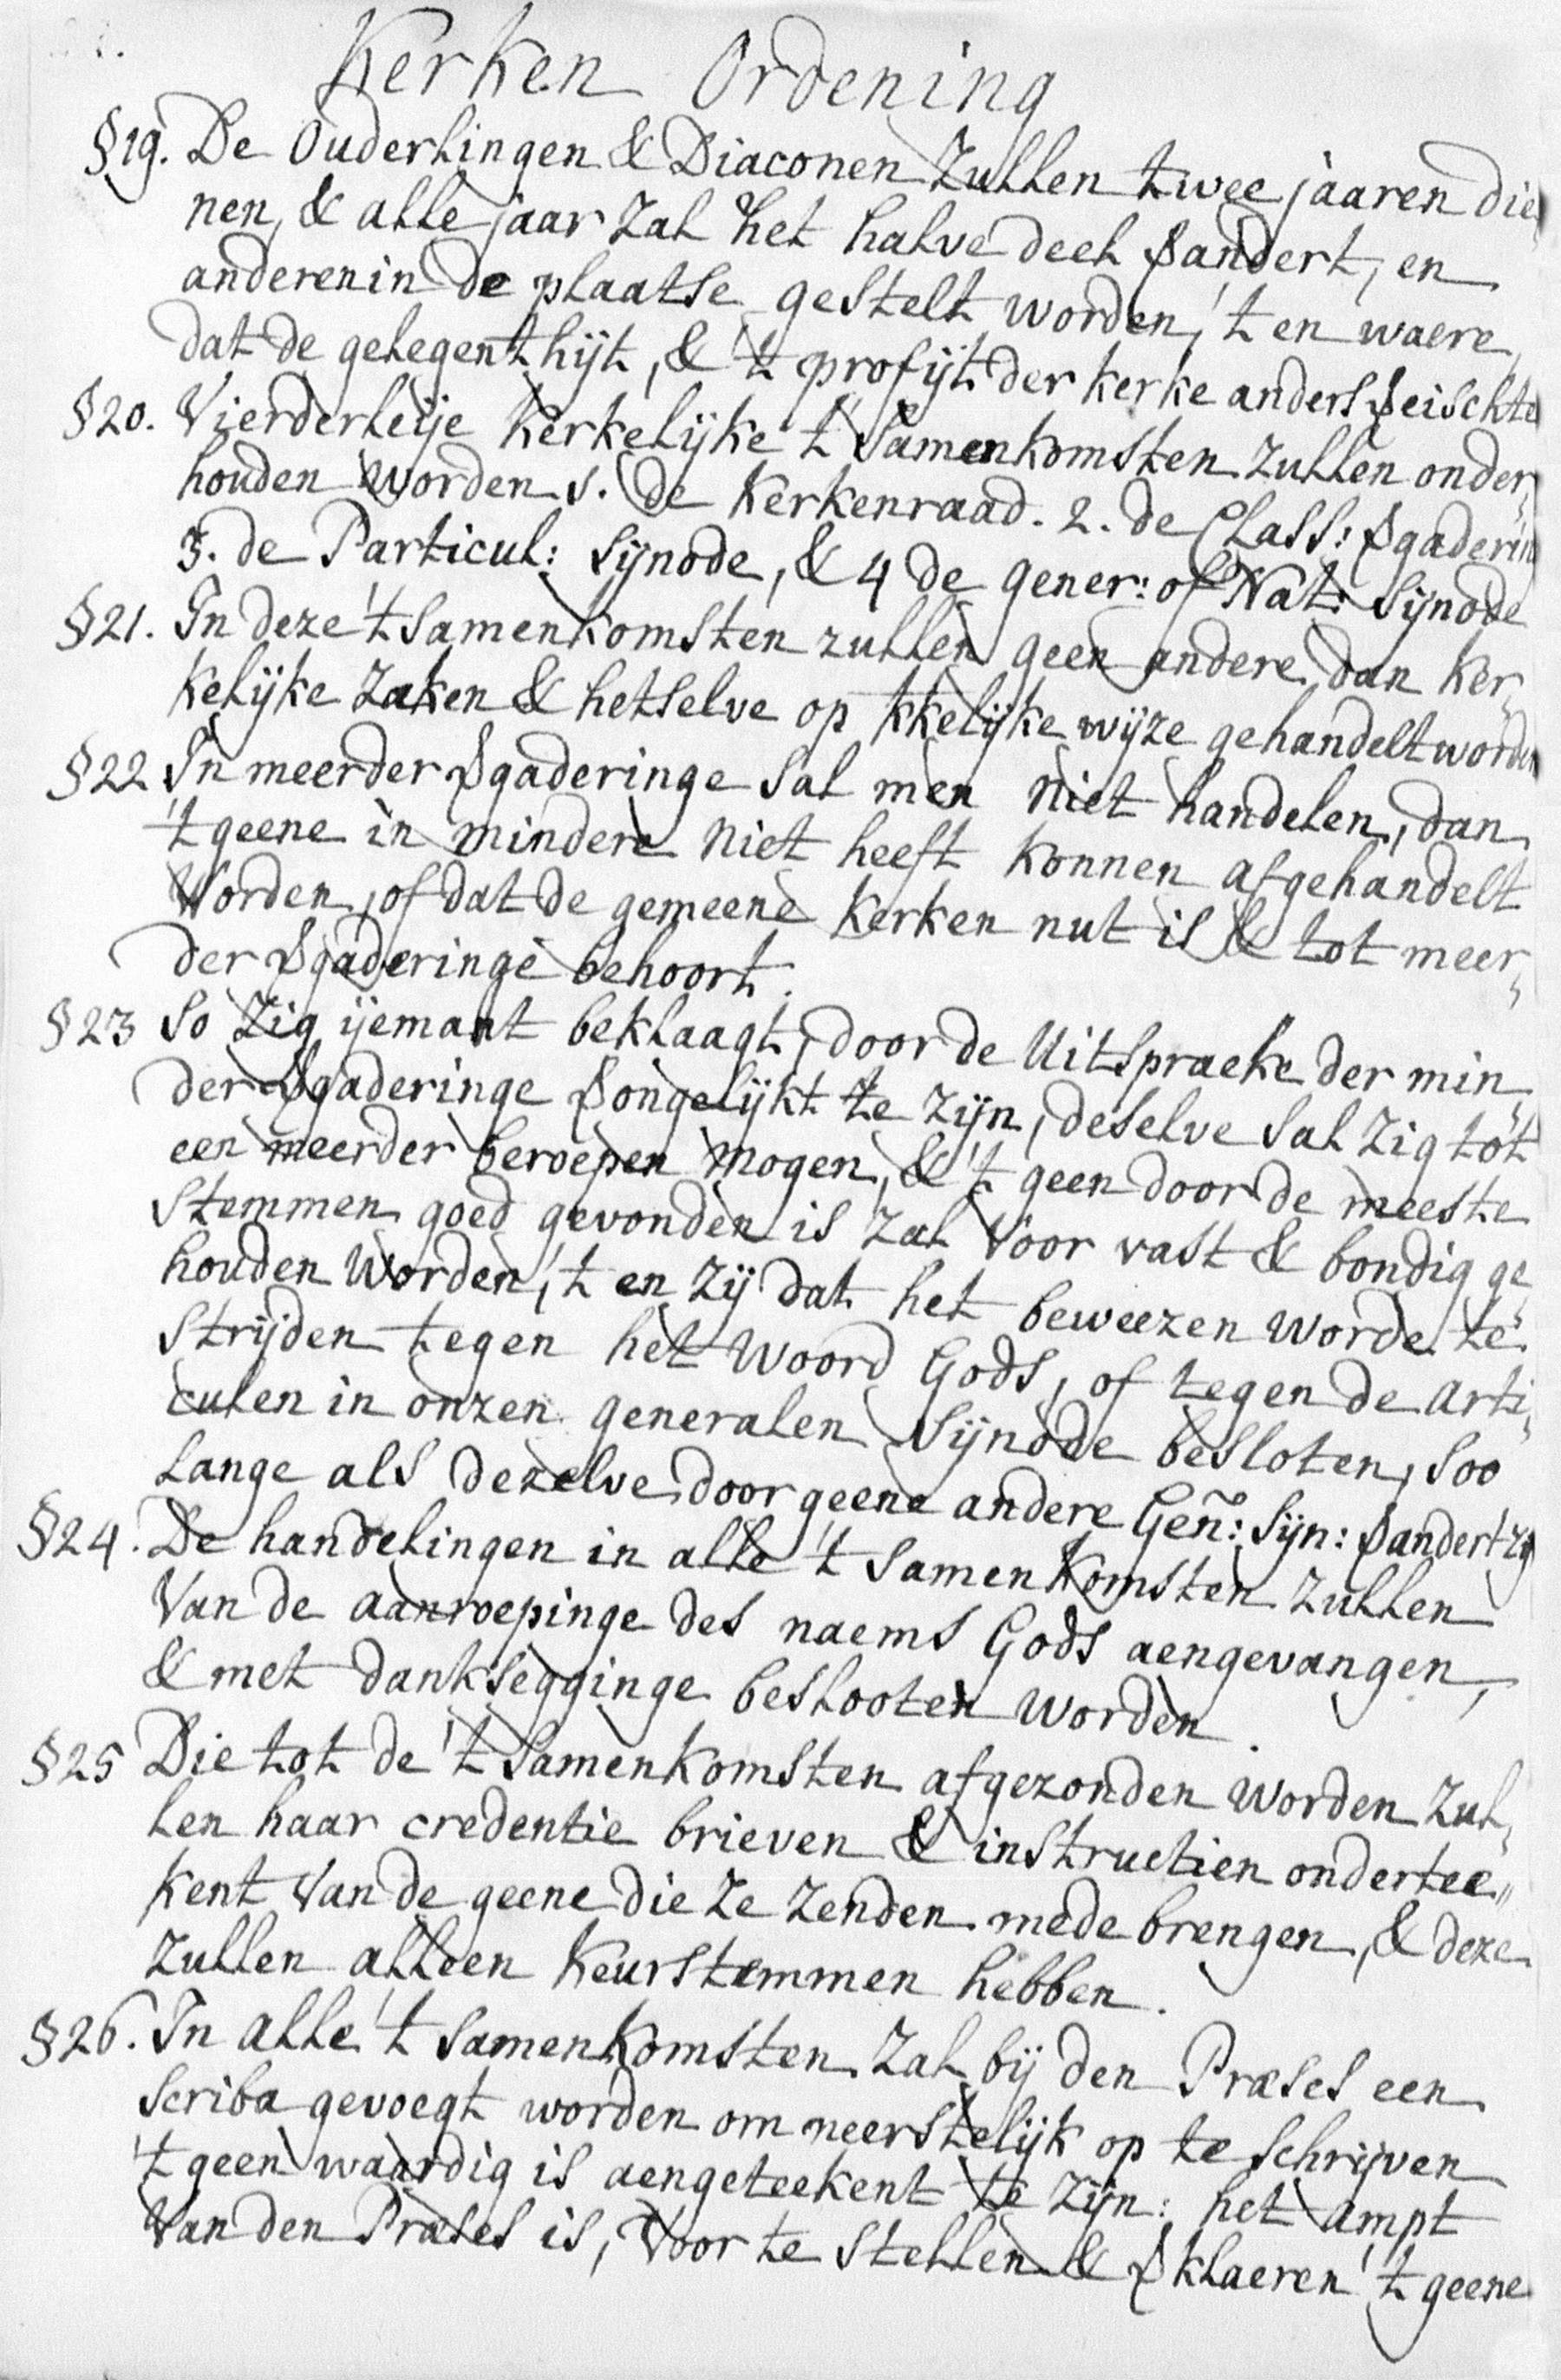 Kerken Ordening
§19. De Ouderlingen & Diaconen Zullen twee jaaren die
nen, & alle jaar Zal het halve deel ꝟandert, en
anderen in de plaatse gestelt worden, 't en waere,
dat de gelegenthijt, & 't profijt der kerke anders ꝟeischte
§20. Vierderleije Kerkelijke 't Samenkomsten Zullen onder„
houden worden 1. de Kerkenraad. 2. de Class: ꝟgadering
3. de Particul: Sijnode, & 4 de gener: of Nat: Sijnode
§21. In deze 't Samenkomsten zullen geen andere dan Ker„
kelijke Zaken & hetselve op kkelijke wijze gehandelt worden
§22 In meerder ꝟgaderinge Sal men niet handelen, dan
't geene in mindere niet heeft konnen afgehandelt
Worden, of dat de gemeene Kerken nut is & tot meer„
der ꝟgaderinge behoort.
§23 So Zig ijemant beklaagt, door de Uitspraeke der min„
der ꝟgaderinge ꝟongelijkt te zijn, deselve Sal Zig tot
een meerder beroepen mogen, & 't geen door de meeste
Stemmen goed gevonden is Zal Voor vast & bondig ge„
houden Worden, 't en Zij dat het beweezen Worde te
Strijden tegen het Woord Gods, of tegen de arti„
culen in onzen generalen Sijnode besloten, Soo
Lange als dezelve door geene andere Geñ: Sijn: ꝟandert zij
§24. De handelingen in alle 't Samenkomsten Zullen
Van de aanroepinge des naems Gods aengevangen,
& met danksegginge beslooten Worden.
§25 Die tot de 't Samenkomsten afgezonden Worden Zul„
len haar credentie brieven & instructien ondertee„
kent Van de geene die Ze Zenden mede brengen, & deze
Zullen alleen Keurstemmen hebben.
§26. In alle 't Samenkomsten Zal bij den Præses een
Scriba gevoegt worden om neerstelijk op te Schrijven
't geen waardig is aengeteekent te Zijn: het ampt
Van den Præses is, Voor te Stellen & ꝟklaeren 't geene